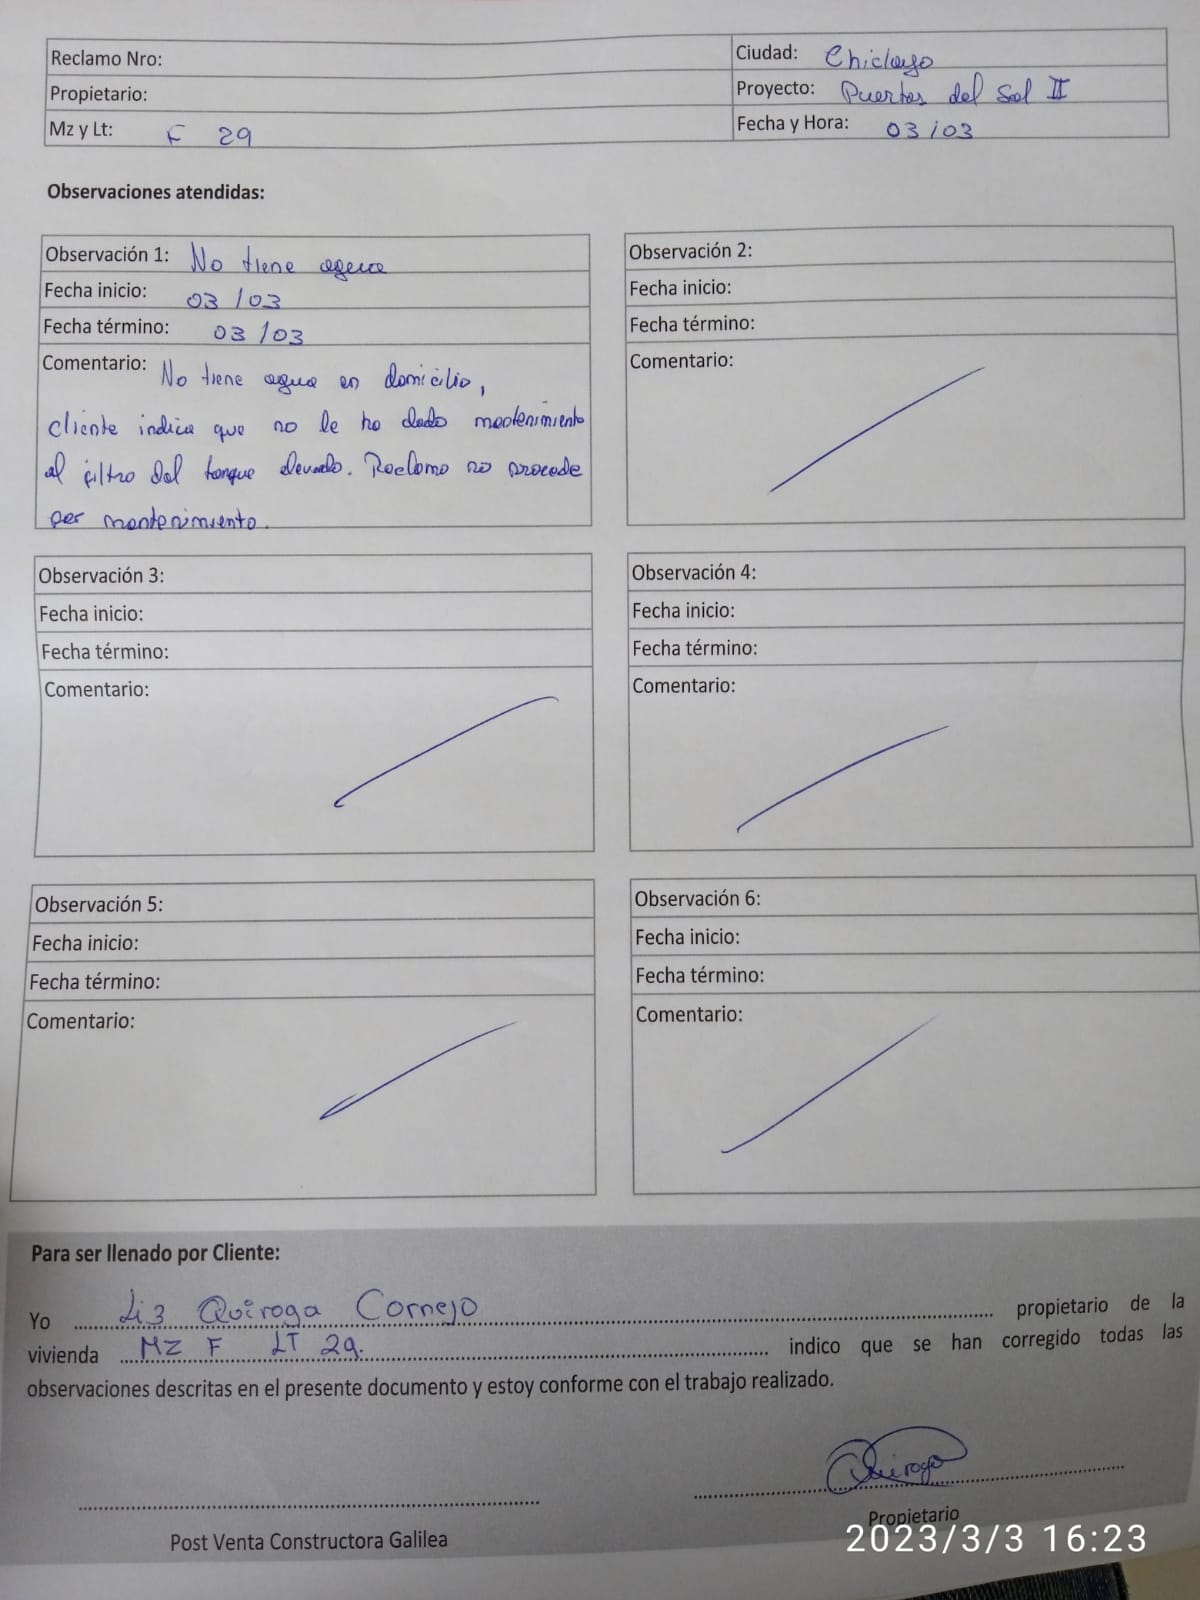 Reclamo Nro:
Ciudad: Chiclayo
Propietario:
Proyecto: Puertas del Sol II
Mz y Lt: F 29
Fecha y Hora: 03/03
Observaciones atendidas:
Observación 1: No tiene agua
Fecha inicio: 03/03
Fecha término: 03/03
Comentario: No tiene agua en domicilio,
cliente indica que no le ha dado mantenimiento
al filtro del tanque elevado. Reclamo no procede
por mantenimiento.
Observación 2:
Fecha inicio:
Fecha término:
Comentario:
Observación 3:
Fecha inicio:
Fecha término:
Comentario:
Observación 4:
Fecha inicio:
Fecha término:
Comentario:
Observación 5:
Fecha inicio:
Fecha término:
Comentario:
Observación 6:
Fecha inicio:
Fecha término:
Comentario:
Para ser llenado por Cliente:
Yo Liz Quiroga Cornejo propietario de la
vivienda MZ F LT 29. indico que se han corregido todas las
observaciones descritas en el presente documento y estoy conforme con el trabajo realizado.
Quiroga
Post Venta Constructora Galilea
Propietario
2023/3/3 16:23